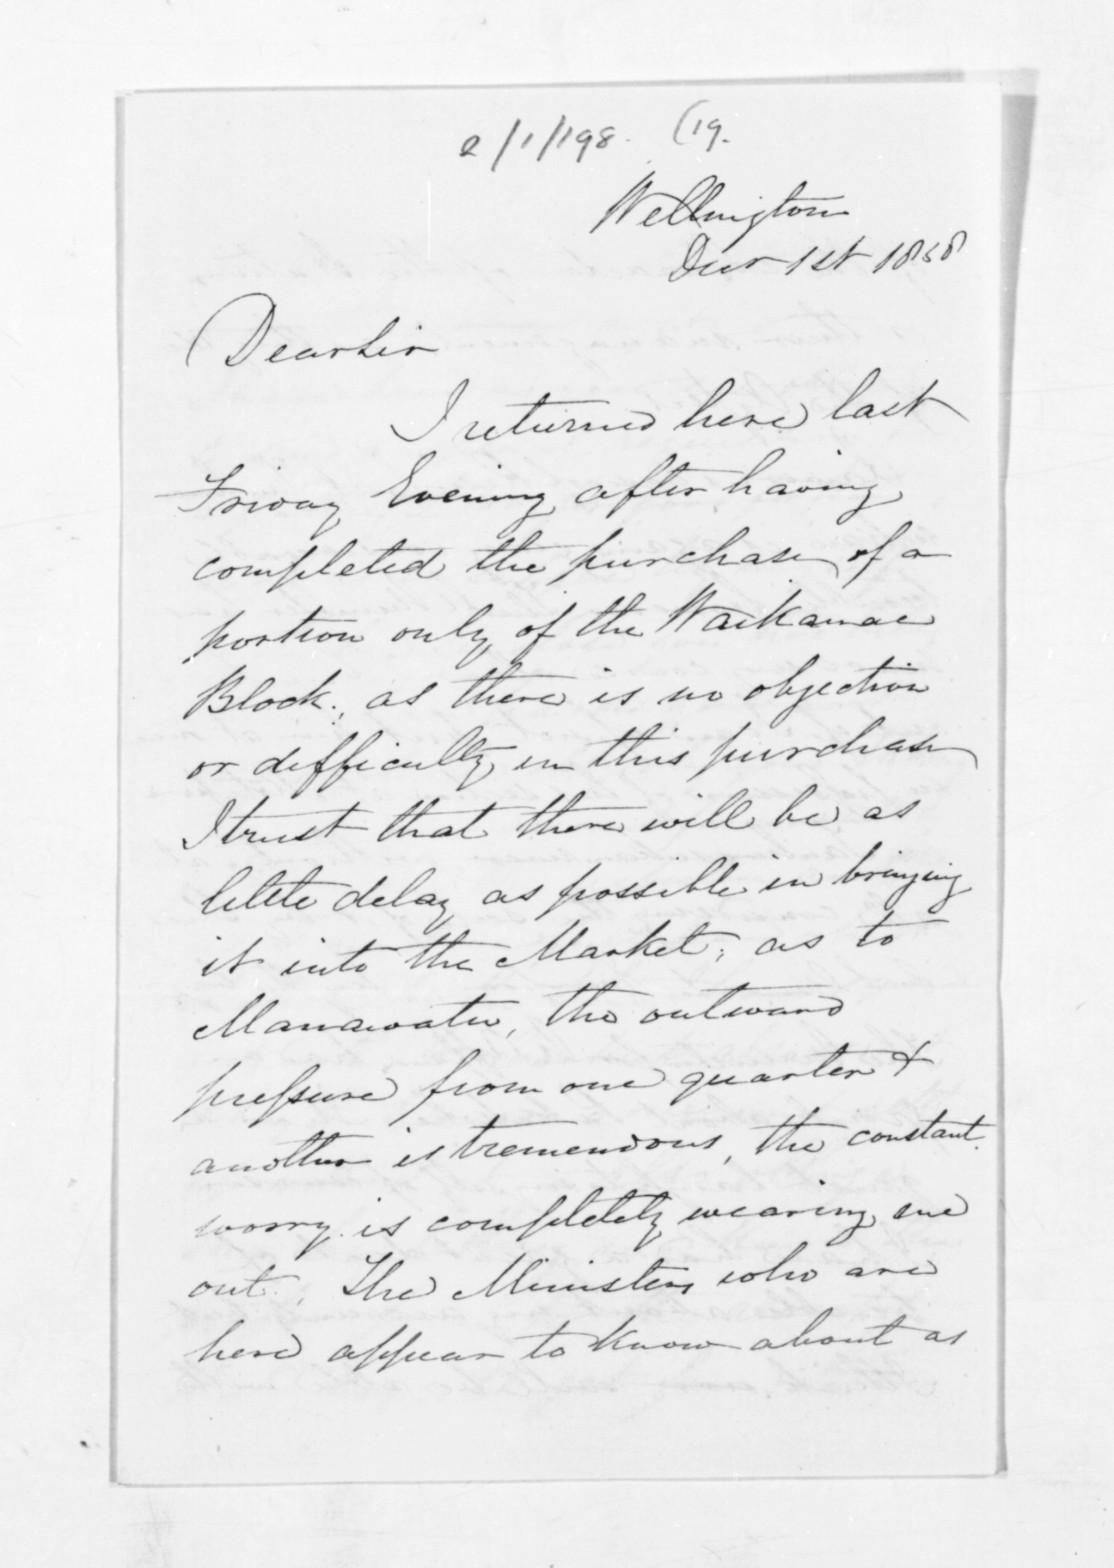 2/1/198. (19.
Wellington
Decr 1st 1858
Dear Sir
I returned here last
Friday Evening after having
completed the purchase of a
portion only of the Waikanae
Block, as there is no objection
or difficulty in this purchase
I trust that there will be as
little delay as possible in bringing
it into the Market, as to
Manawatu, the outward
pressure from one quarter &
another is tremendous, the constant
worry is completely wearing me
out. The Ministers who are
here appear to know about as